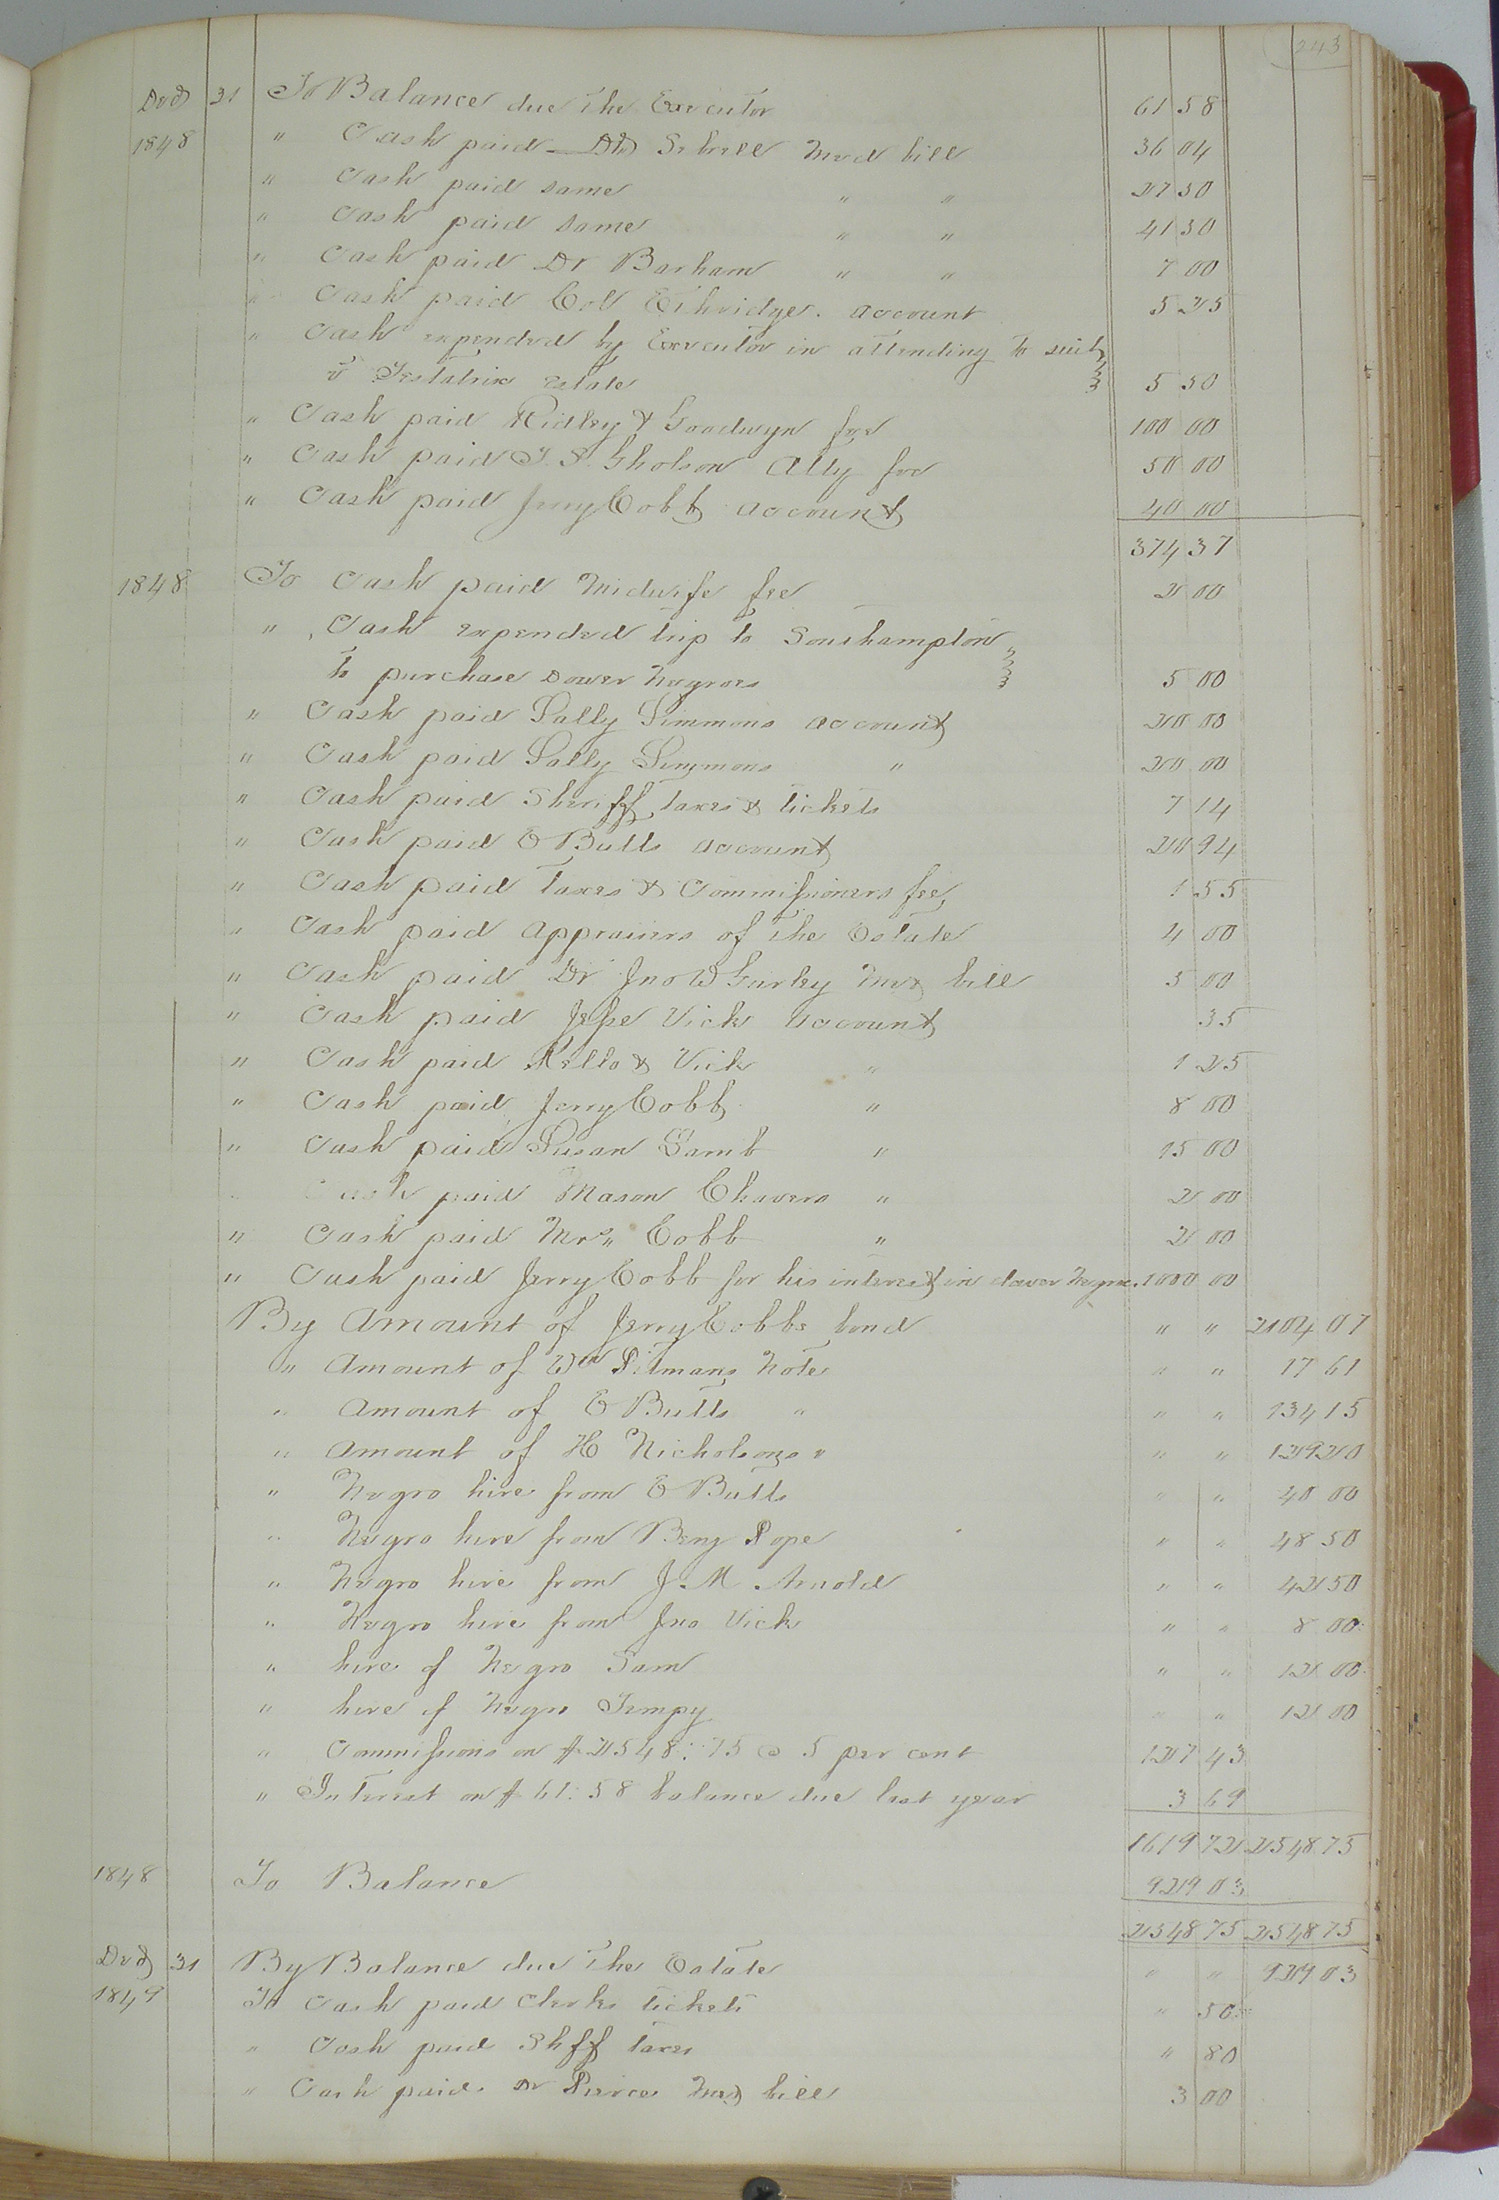 243
Decd 31 To Balance due the Executor 61 58
1848 " Cash paid Dr Sebrell Med bill 36 04
" Cash paid same " " 27 50
" Cash paid same " " 41 50
" Cash paid Dr Barham " " 7 00
" Cash paid Col Ethridge. account 5 25
" Cash expended by Executor in attending to suit
v Testatrix estate 5 50
" Cash paid Ridley & Goodwyn fee 100 00
" Cash paid T. S. Gholson Atty fee 50 00
" Cash paid Jerry Cobb account 40 00
374 37
1848 To Cash paid Midwife fee 2 00
" Cash expended trip to Southampton
to purchase Dower Negroes 5 00
" Cash paid Sally Simmons account 20 00
" Cash paid Sally Simmons " 20 00
" Cash paid Sheriff taxes & tickets 7 14
" Cash paid E Butts account 20 94
" Cash paid taxes & Commissioners fee, 1 55
" Cash paid appraisers of the Estate 4 00
" Cash paid Dr Jno W Gurley Med bill 5 00
" Cash paid Jesse Vick account .35
" Cash paid Kello & Vick " 1 25
" Cash paid Jerry Cobb " 8 00
" Cash paid Susan Lamb " 15 00
Cash paid Mason Chavers " 2 00
" Cash paid Mrs Cobb " 2 00
" Cash paid Jerry Cobb for his interest in dower Negroe. 1000 00
By Amount of Jerry Cobbs bond " " 2104 07
" Amount of Wm Pitmans Note " " 17 61
" Amount of E Butts " " " 134 15
" Amount of H Nicholsons " " " 129 20
" Negro hire from E Butts " " 40 00
" Negro hire from Benj Pope " " 48 50
" Negro hire from J. M. Arnold " " 42 50
" Negro hire from Jno Vick " " 8 00
" hire of Negro Sam " " 12 00
" hire of Negro Tempy " " 12 00
" Commissions on $2548:75 @ 5 per cent 127 43
" Interest on $61:58 balance due last year 3 69
1619 72 2548 75
1848 To Balance 929 03
2548 75 2548 75
Decd 31 By Balance due the Estate " " 929 03
1849 To Cash paid Clerks tickets " 50
" Cash paid Shff taxes " 80
" Cash paid Dr Peirce Med bill 3 00